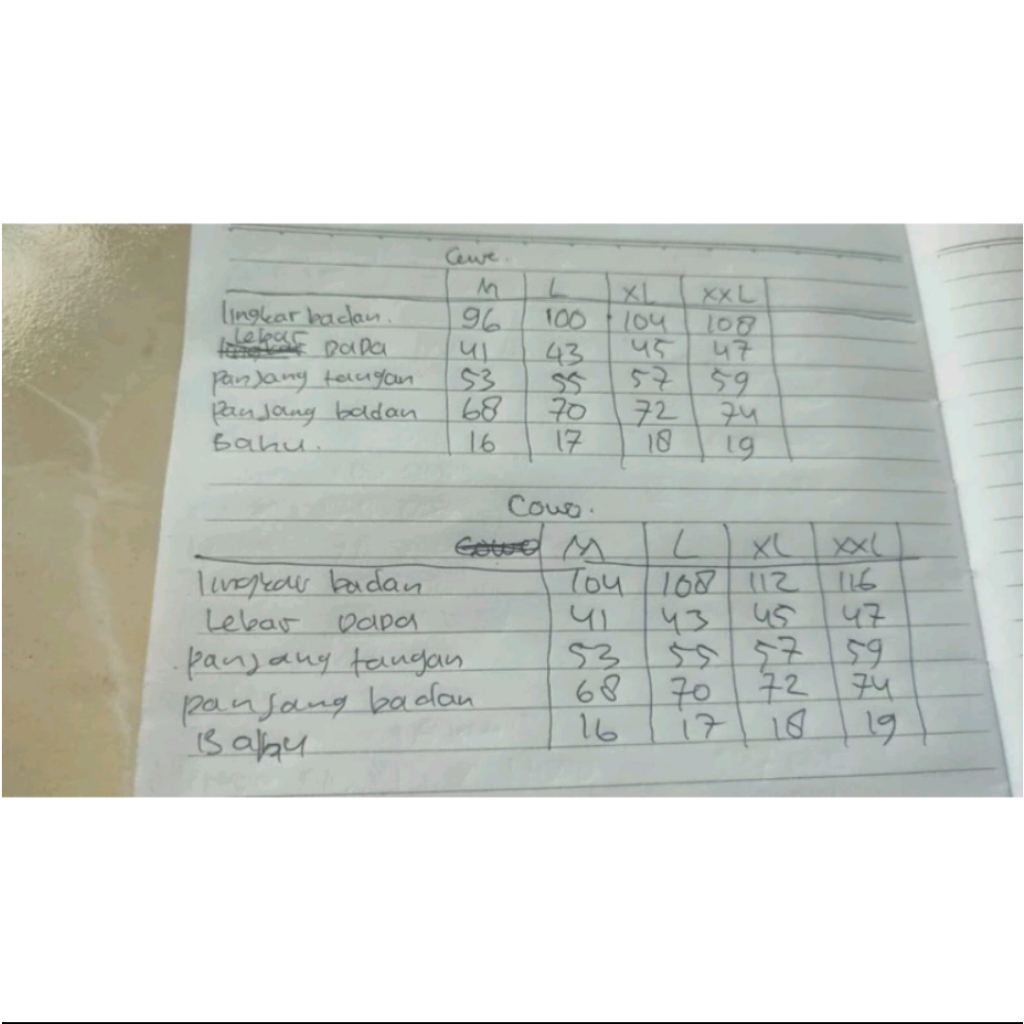 Cewe.
M L XL XXL
lingkar badan. 96 100 104 108
Lebar DADA 41 43 45 47
Panjang tangan 53 55 57 59
Panjang badan 68 70 72 74
Bahu. 16 17 18 19
Cowo.
M L XL XXL
lingkar badan 104 108 112 116
Lebar DADA 41 43 45 47
panjang tangan 53 55 57 59
panjang badan 68 70 72 74
Bahu 16 17 18 19